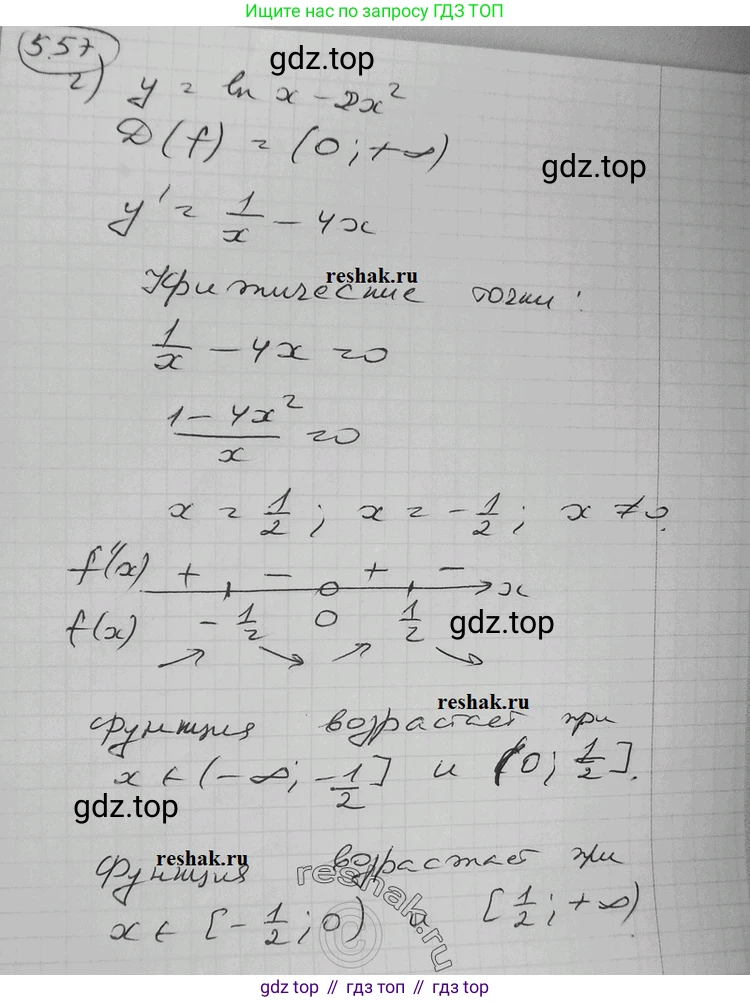 Ищите нас по запросу ГДЗ ТОП
5.57
2) y = ln x - 2x²
gdz.top
D(f) = (0; +∞)
gdz.top
y' = 1/x - 4x
reshak.ru
Критические точки:
1/x - 4x = 0
(1 - 4x²)/x = 0
x = 1/2; x = -1/2; x ≠ 0.
f'(x) + - + - x
f(x) -1/2 0 1/2
gdz.top
reshak.ru
Функция возрастает при
x ∈ (-∞; -1/2] и (0; 1/2].
gdz.top
reshak.ru
Функция возрастает при
reshak.ru
x ∈ [-1/2; 0) и [1/2; +∞)
©
gdz.top // гдз топ // gdz.top